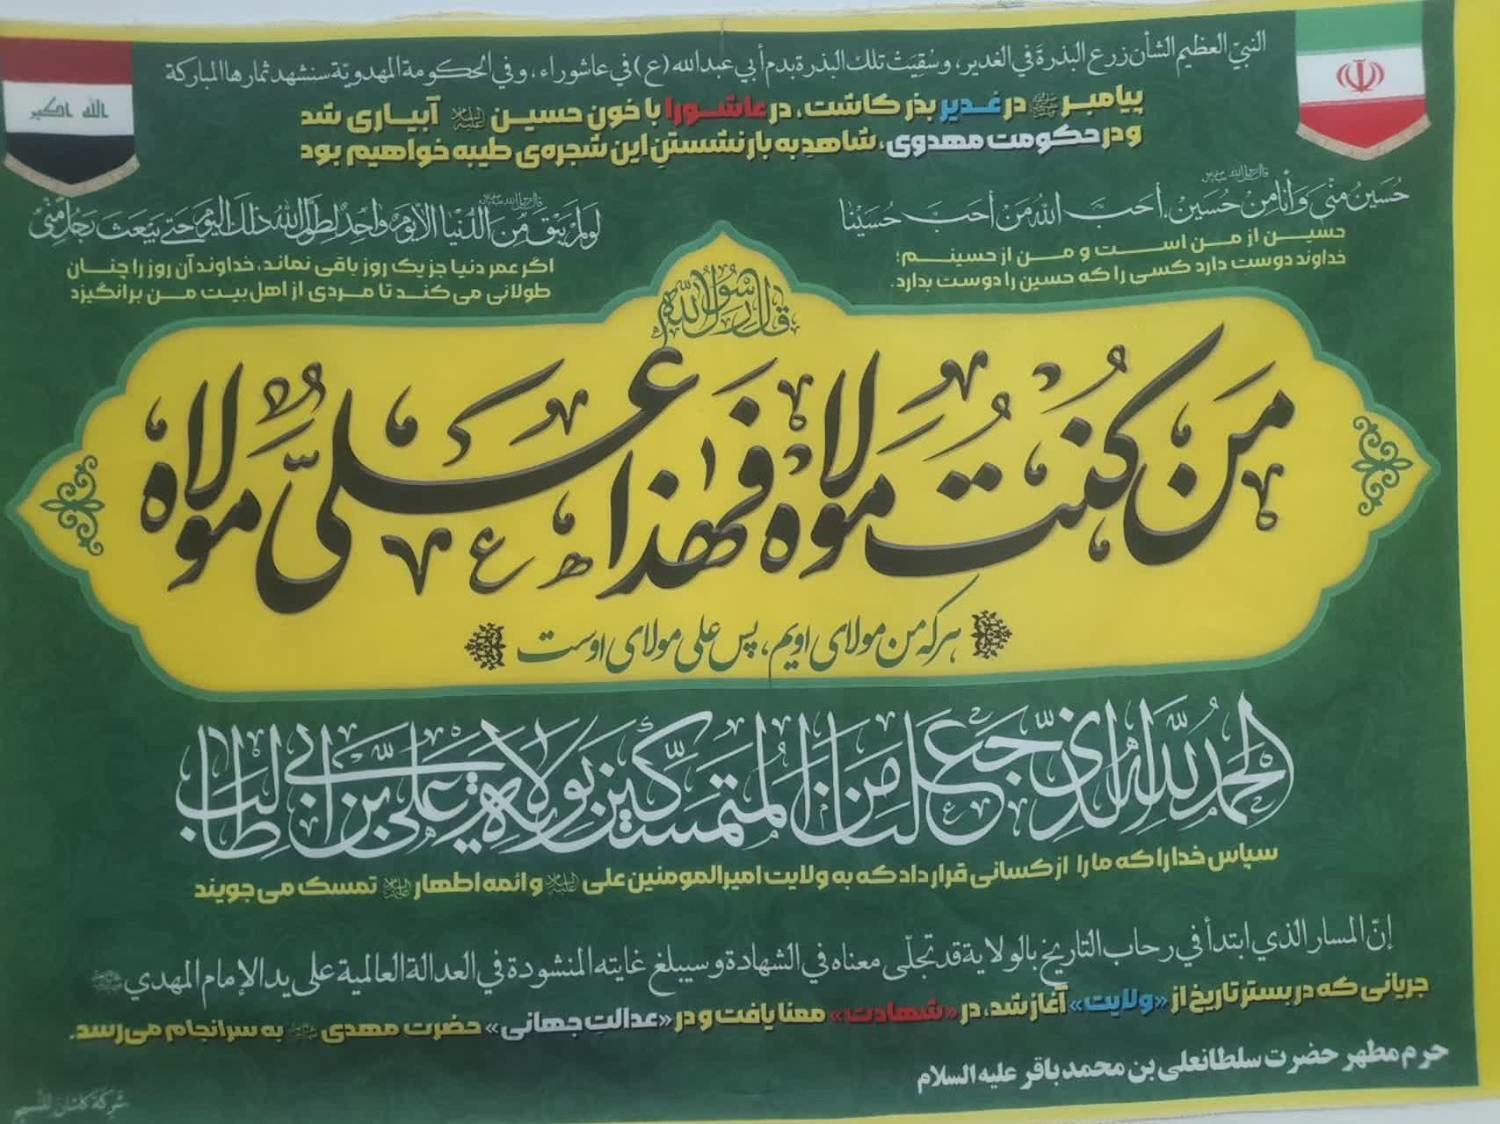 النبيّ العظيم الشأن زرع البذرة في الغدير، وسُقِيَتْ تلك البذرة بدم أبي عبدالله (ع) في عاشوراء، وفي الحكومة المهدويّة سنشهد ثمارها المباركة
پیامبر ﷺ در غدیر بذر کاشت، در عاشورا با خون حسین علیه‌السلام آبیاری شد
و در حکومت مهدوی، شاهد به بار نشستن این شجره‌ی طیبه خواهیم بود
الله اکبر
حُسَین مِنّي وَ أنا مِن حُسَین، أحَبَّ اللهُ مَن أحَبَّ حُسَیْنا
حسین از من است و من از حسینم؛
خداوند دوست دارد کسی را که حسین را دوست بدارد.
لَو لَم یَبقَ مِنَ الدُّنیا اِلّا یَومٌ واحِدٌ لَطَوَّلَ اللهُ ذلِكَ الیَومَ حَتّی یَبعَثَ رَجُلاً مِنّي
اگر عمر دنیا جز یک روز باقی نماند، خداوند آن روز را چنان
طولانی می‌کند تا مردی از اهل بیت من برانگیزد
قال رسول الله
مَن کُنتُ مَولاهُ فَهٰذا عَليٌّ مَولاه
هرکه من مولای اویم، پس علی مولای اوست
الحمد لله الذي جعلنا من المتمسكين بولاية علي بن ابي طالب
سپاس خدا را که ما را از کسانی قرار داد که به ولایت امیرالمومنین علی علیه‌السلام و ائمه اطهار علیهم‌السلام تمسک می جویند
إنّ المسار الذي ابتدأ في رحاب التاريخ بالولاية قد تجلّى معناه في الشهادة وسيبلغ غايته المنشودة في العدالة العالمية على يد الإمام المهدي
جریانی که در بستر تاریخ از «ولایت» آغاز شد، در «شهادت» معنا یافت و در «عدالت جهانی» حضرت مهدی به سرانجام می‌رسد.
حرم مطهر حضرت سلطانعلی بن محمد باقر علیه السلام